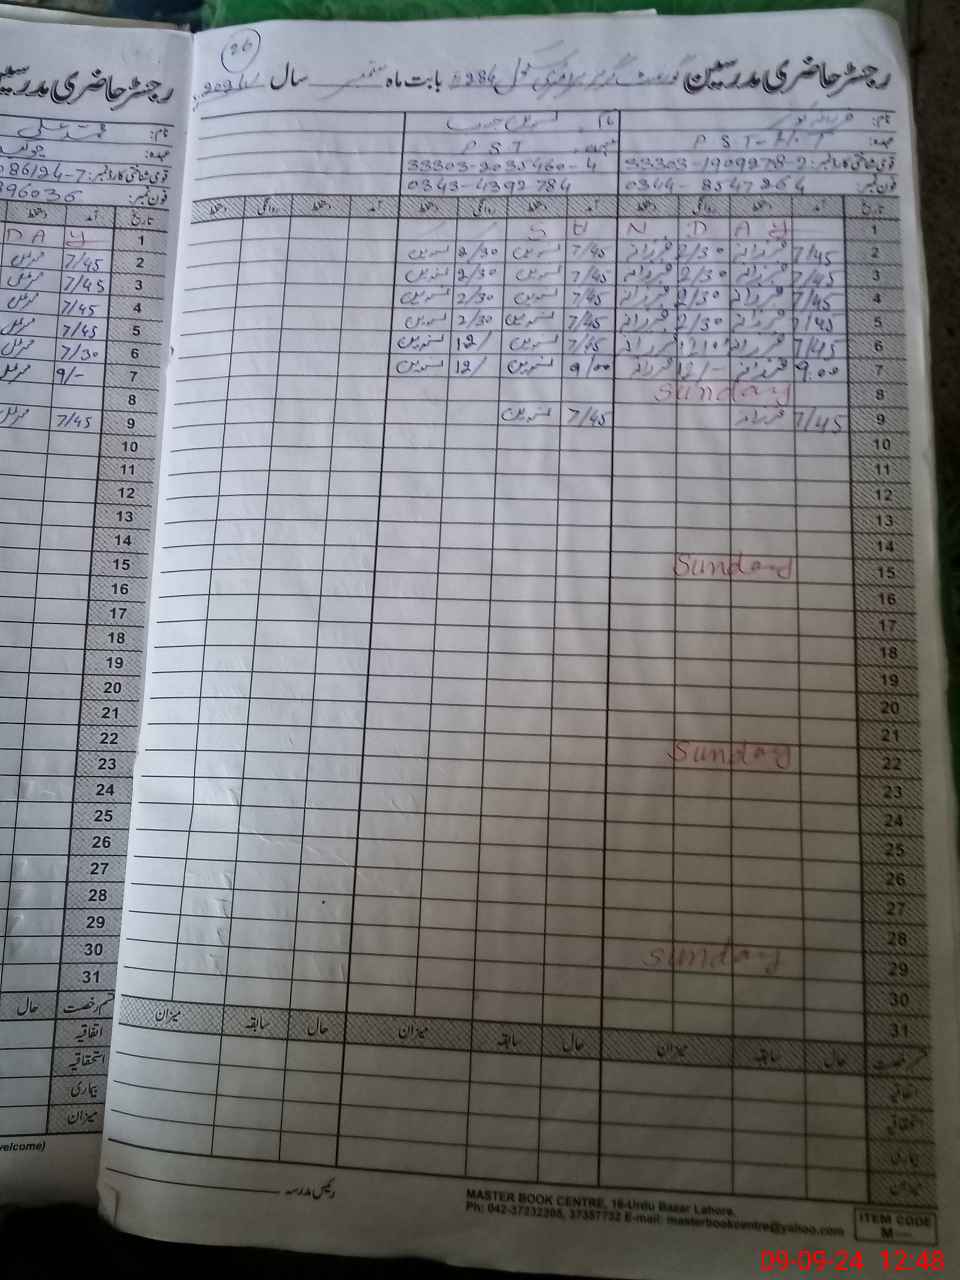 26
رجسٹر حاضری مدرسین گورنمنٹ گرلز پرائمری سکول 284 بابت ماہ ستمبر سال 2024
نام: نام:
عہدہ: P S T عہدہ: P S T
قومی شناختی کارڈ نمبر: 33303-1909278-2 33303-2035460-4
فون نمبر: 0344-8547264 0343-4392784
تاریخ آمد دستخط روانگی دستخط آمد دستخط روانگی دستخط آمد دستخط روانگی دستخط
1 S U N D A Y
2 7/45 فرزانہ 2/30 فرزانہ 7/45 نسرین 2/30 نسرین
3 7/45 فرزانہ 2/30 فرزانہ 7/45 نسرین 2/30 نسرین
4 7/45 فرزانہ 2/30 فرزانہ 7/45 نسرین 2/30 نسرین
5 7/45 فرزانہ 2/30 فرزانہ 7/45 نسرین 2/30 نسرین
6 7/45 فرزانہ فرزانہ 7/45 نسرین 12/ نسرین
7 9.00 فرزانہ 12/- فرزانہ 9/00 نسرین 12/ نسرین
8 Sunday
9 7/45 فرزانہ 7/45 نسرین
10
11
12
13
14
15 Sunday
16
17
18
19
20
21
22 Sunday
23
24
25
26
27
28
29 Sunday
30
31
قسم رخصت حال سابقہ میزان حال سابقہ میزان حال سابقہ میزان
اتفاقیہ
استحقاقیہ
بیماری
میزان
رئیس مدرسہ
MASTER BOOK CENTRE, 16-Urdu Bazar Lahore.
Ph: 042-37232205, 37357732 E-mail: masterbookcentre@yahoo.com
ITEM CODE
M
رجسٹر حاضری مدرسین
نام:
عہدہ:
قومی شناختی کارڈ نمبر: 086124-7
فون نمبر: 896035
تاریخ آمد دستخط
1 D A Y
2 7/45
3 7/45
4 7/45
5 7/45
6 7/30
7 9/-
8
9 7/45
10
11
12
13
14
15
16
17
18
19
20
21
22
23
24
25
26
27
28
29
30
31
قسم رخصت حال
اتفاقیہ
استحقاقیہ
بیماری
میزان
welcome)
09-09-24 12:48